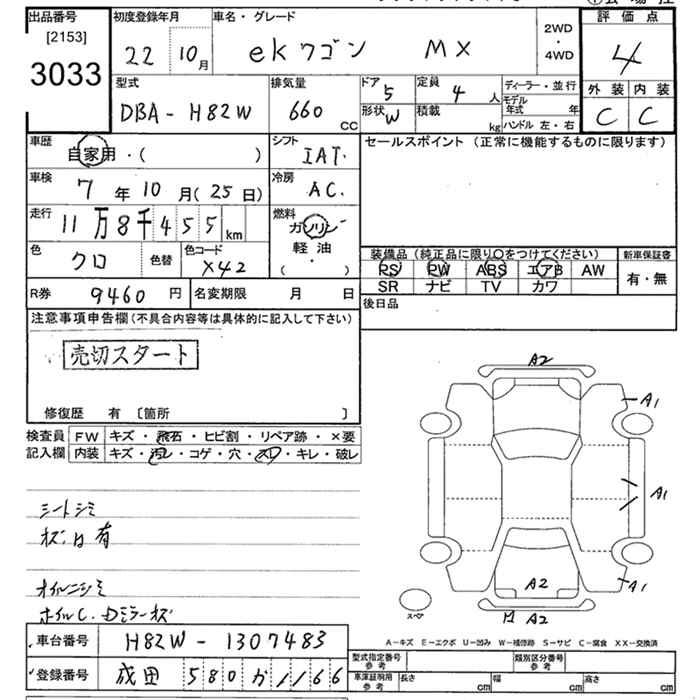 出品番号
[2153]
3033
初度登録年月
22 10月
車名・グレード
ekワゴン MX
2WD
・
4WD
評価点
4
外装 内装
C C
型式
DBA-H82W
排気量
660 CC
ドア 5
形状 W
定員 4 人
積載 kg
ディーラー・並行
モデル年式 年
ハンドル 左・右
車歴
自家用・( )
シフト
IAT
車検
7年10月(25日)
冷房
AC.
走行
11万8千455km
燃料
ガソリン
軽油
・
( )
色
クロ
色替
色コード
X42
R券 9460円
名変期限 月 日
セールスポイント (正常に機能するものに限ります)
装備品 (純正品に限り○をつけてください)
新車保証書
PS PW ABS エアB AW
SR ナビ TV カワ
有・無
後日品
注意事項申告欄(不具合内容等は具体的に記入して下さい)
売切スタート
修復歴 有 〔箇所 〕
検査員
記入欄
FW キズ・飛石・ヒビ割・リペア跡・×要
内装 キズ・汚レ・コゲ・穴・スレ・キレ・破レ
シートシミ
オイルニジミ
ホイルC.Dミラーキズ
車台番号 H82W-1307483
登録番号 成田 580 か 1166
A2
A1
A1
A1
A2
A2
スペア
A-キズ E-エクボ U-凹み W-補修跡 S-サビ C-腐食 XX-交換済
型式指定番号
参考
類別区分番号
参考
車庫証明用
参考
長さ cm
幅 cm
高さ cm